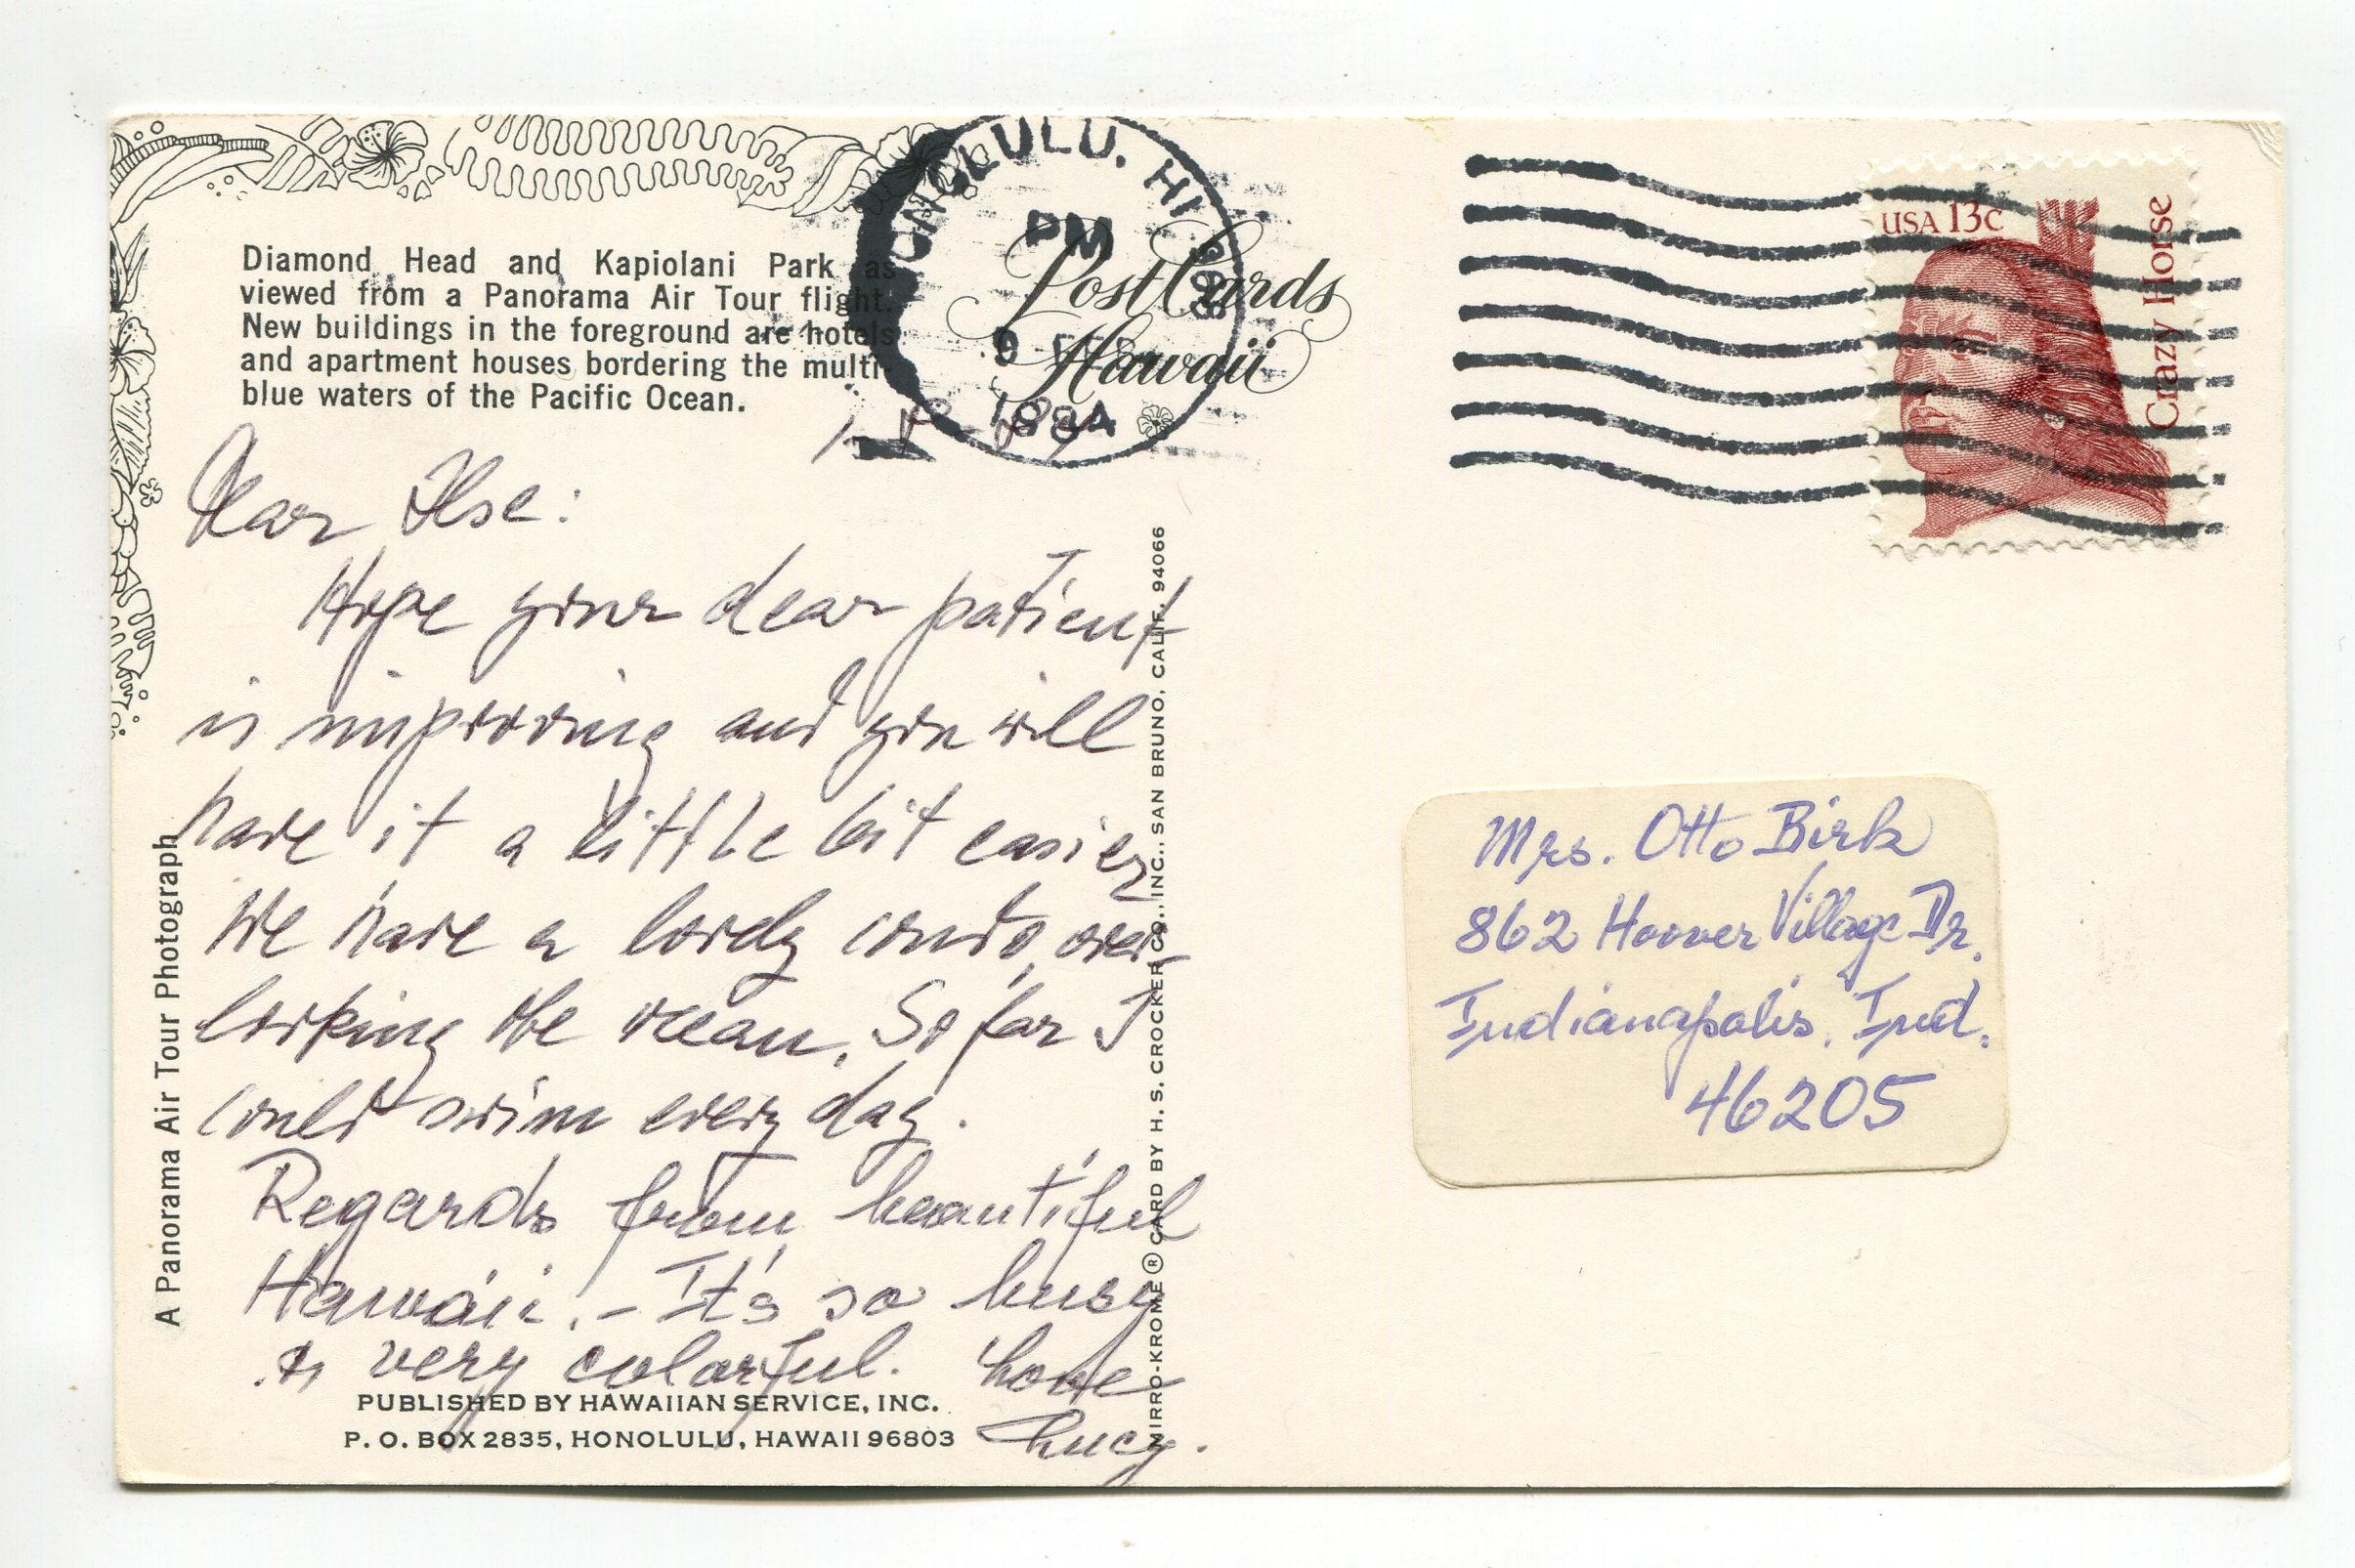 Diamond Head and Kapiolani Park as
viewed from a Panorama Air Tour flight.
New buildings in the foreground are hotels
and apartment houses bordering the multi-
blue waters of the Pacific Ocean.
HONOLULU, HI
PM
9 FEB
1984
Post Cards
Hawaii
USA 13c
Crazy Horse
Dear Ilse:
Hope your dear patient
is improving and you will
have it a little bit easier
We have a lovely condo, over-
looking the ocean. So far I
could swim every day.
Regards from beautiful
Hawaii. - It's so busy
& very colorful. Love
Lucy.
A Panorama Air Tour Photograph
PUBLISHED BY HAWAIIAN SERVICE, INC.
P. O. BOX 2835, HONOLULU, HAWAII 96803
MIRRO-KROME ® CARD BY H. S. CROCKER CO., INC., SAN BRUNO, CALIF. 94066
Mrs. Otto Birk
862 Hoover Village Dr.
Indianapolis, Ind.
46205